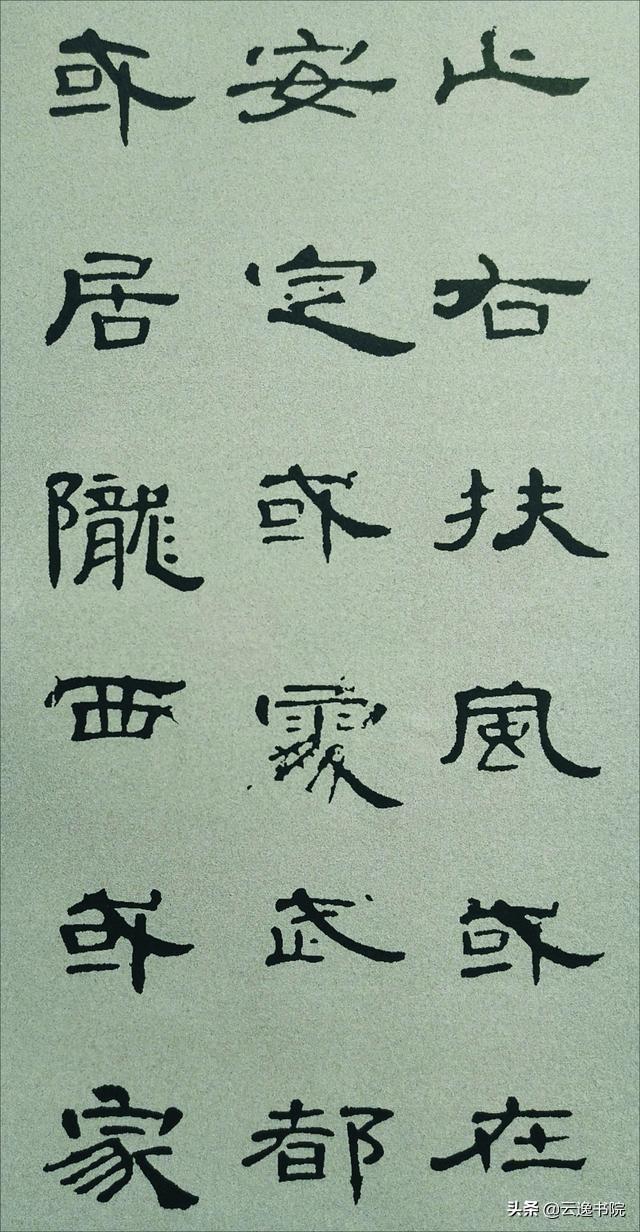 止右扶風或在
安定或處武都
或居隴西或家
头条 @云逸书院